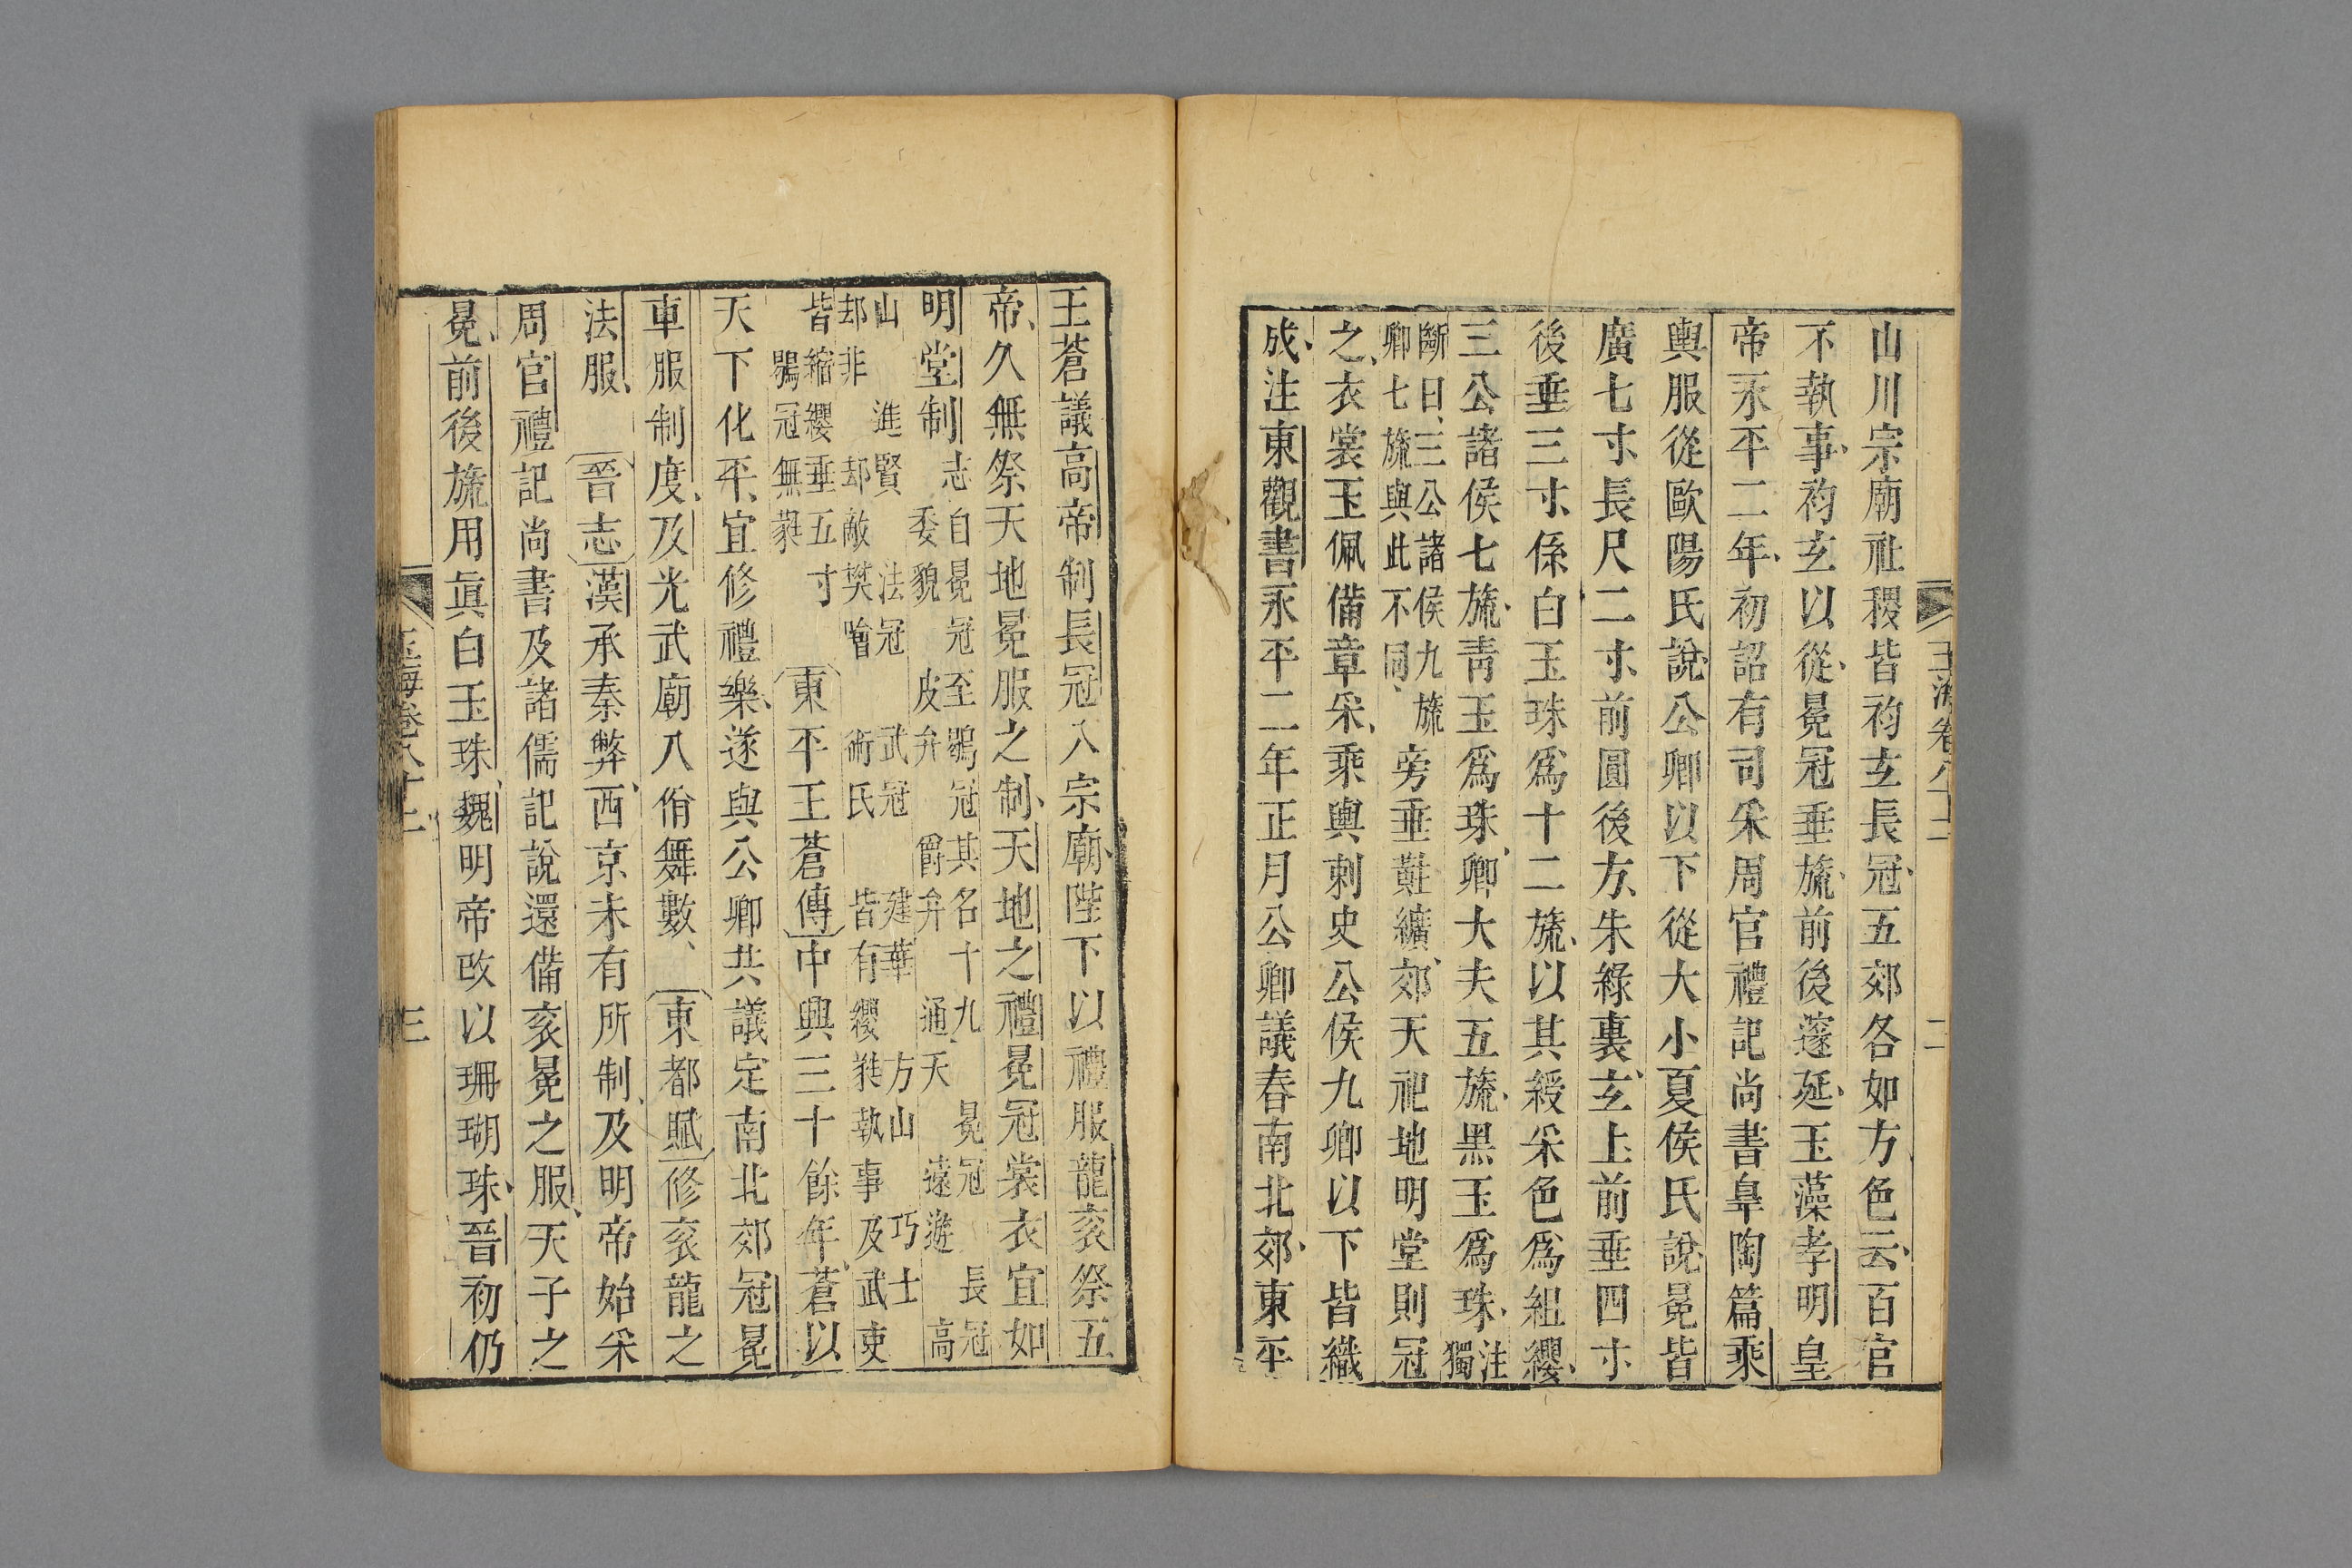 玉海卷八十二 二
山川宗廟社稷皆袀玄長冠五郊各如方色云百官
不執事袀玄以從冕冠垂旒前後邃延玉藻孝明皇
帝永平二年初詔有司采周官禮記尚書臯陶篇乘
輿服從歐陽氏說公卿以下從大小夏侯氏說冕皆
廣七寸長尺二寸前圓後方朱綠裏玄上前垂四寸
後垂三寸係白玉珠爲十二旒以其綬采色爲組纓
三公諸侯七旒青玉爲珠卿大夫五旒黑玉爲珠注獨
斷曰三公諸侯九旒卿七旒與此不同旁垂黈纊郊天祀地明堂則冠
之衣裳玉佩備章采乘輿刺史公侯九卿以下皆織
成注東觀書永平二年正月公卿議春南北郊東平
王蒼議高帝制長冠入宗廟陛下以禮服龍衮祭五
帝久無祭天地冕服之制天地之禮冕冠裳衣宜如
明堂制志自冕冠至鶡冠其名十九 冕冠 長冠 委貌 皮弁 爵弁 通天 遠遊 高
山 進賢 法冠 武冠 建華 方山 巧士 却非 却敵 樊噲 術氏 皆有纓蕤執事及武吏
皆縮纓垂五寸 鶡冠無蕤 東平王蒼傳中興三十餘年蒼以
天下化平宜修禮樂遂與公卿共議定南北郊冠冕
車服制度及光武廟八佾舞數 東都賦修衮龍之
法服 晉志漢承秦弊西京未有所制及明帝始采
周官禮記尚書及諸儒記說還備衮冕之服天子之
冕前後旒用真白玉珠魏明帝改以珊瑚珠晉初仍
玉海卷八十二 三